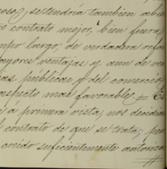 esos, y tendría tambien ab
contrato mejor, bien fuera
mpo luego de verdadera refor
ayores ventajas y aun de ven
as públicas y del comercio
aspecto mas favorable
á primera vista, nos decidi
contrato de que se trata, po
creido suficientemente autoriza